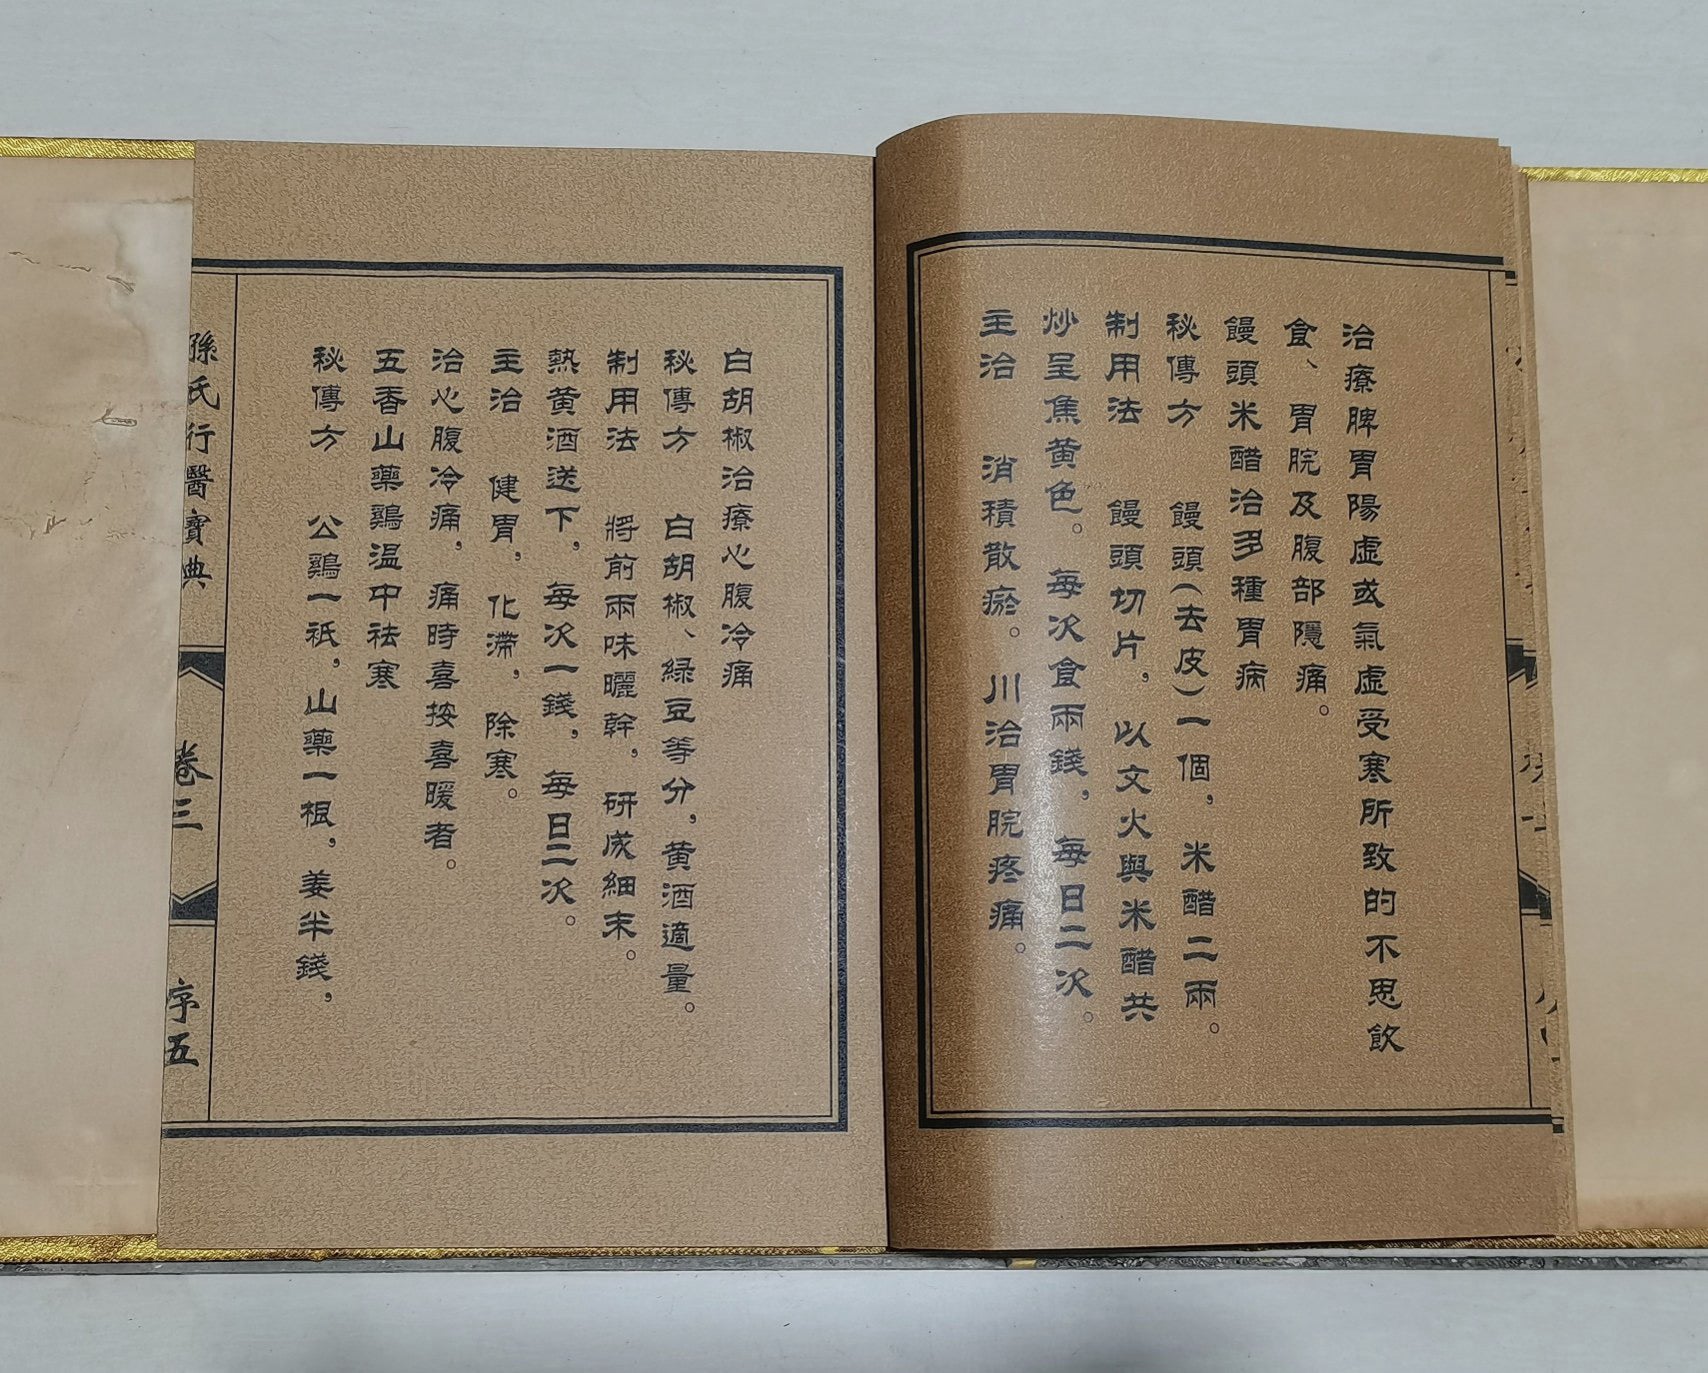 治療脾胃陽虛或氣虛受寒所致的不思飲
食、胃脘及腹部隱痛。
饅頭米醋治多種胃病
秘傳方 饅頭(去皮)一個，米醋二兩。
制用法 饅頭切片，以文火與米醋共
炒呈焦黄色。每次食兩錢，每日二次。
主治 消積散瘀。川治胃脘疼痛。
白胡椒治療心腹冷痛
秘傳方 白胡椒、緑豆等分，黄酒適量。
制用法 將前兩味曬幹，研成細末。
熱黄酒送下，每次一錢，每日二次。
主治 健胃，化滯，除寒。
治心腹冷痛，痛時喜按喜暖者。
五香山藥鷄温中祛寒
秘傳方 公鷄一祇，山藥一根，姜半錢，
孫氏行醫寶典
卷三
序五